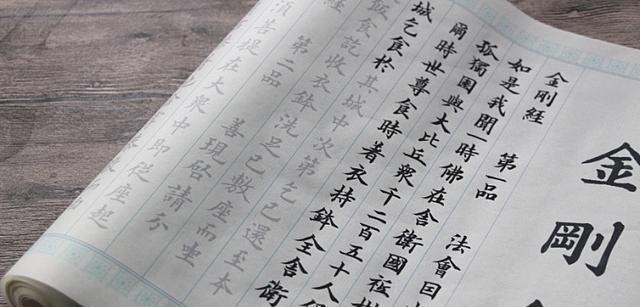 金剛
金剛經 第一品 法會因
如是我聞一時佛在舍衛國祇樹
孤獨園與大比丘眾千二百五十人俱
爾時世尊食時著衣持鉢全舍衛
城乞食於其城中次第乞已還至本
飯食訖收衣鉢洗足已敷座而坐
經 第二品 善現啟請分
須菩提在大眾中即從座起